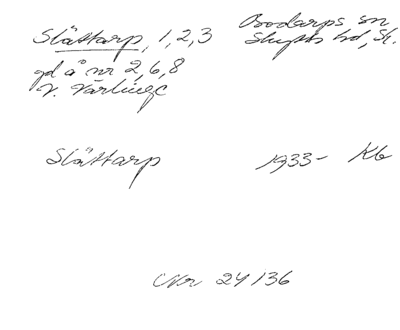 Slättarp, 1, 2, 3
Bodarps sn
Skytts hd, Sk.
gd å nr 2, 6, 8
V. Värlinge
Slättarp
1933- Kb
Nr 24136